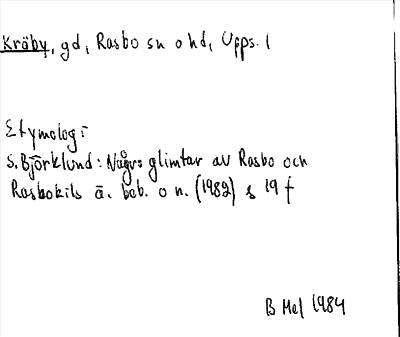 Kräby, gd, Rasbo sn o hd, Upps. l
Etymologi:
S. Björklund: Några glimtar av Rasbo och
Rasbokils ä. beb. o n. (1982) s 19 f
B Mel 1984